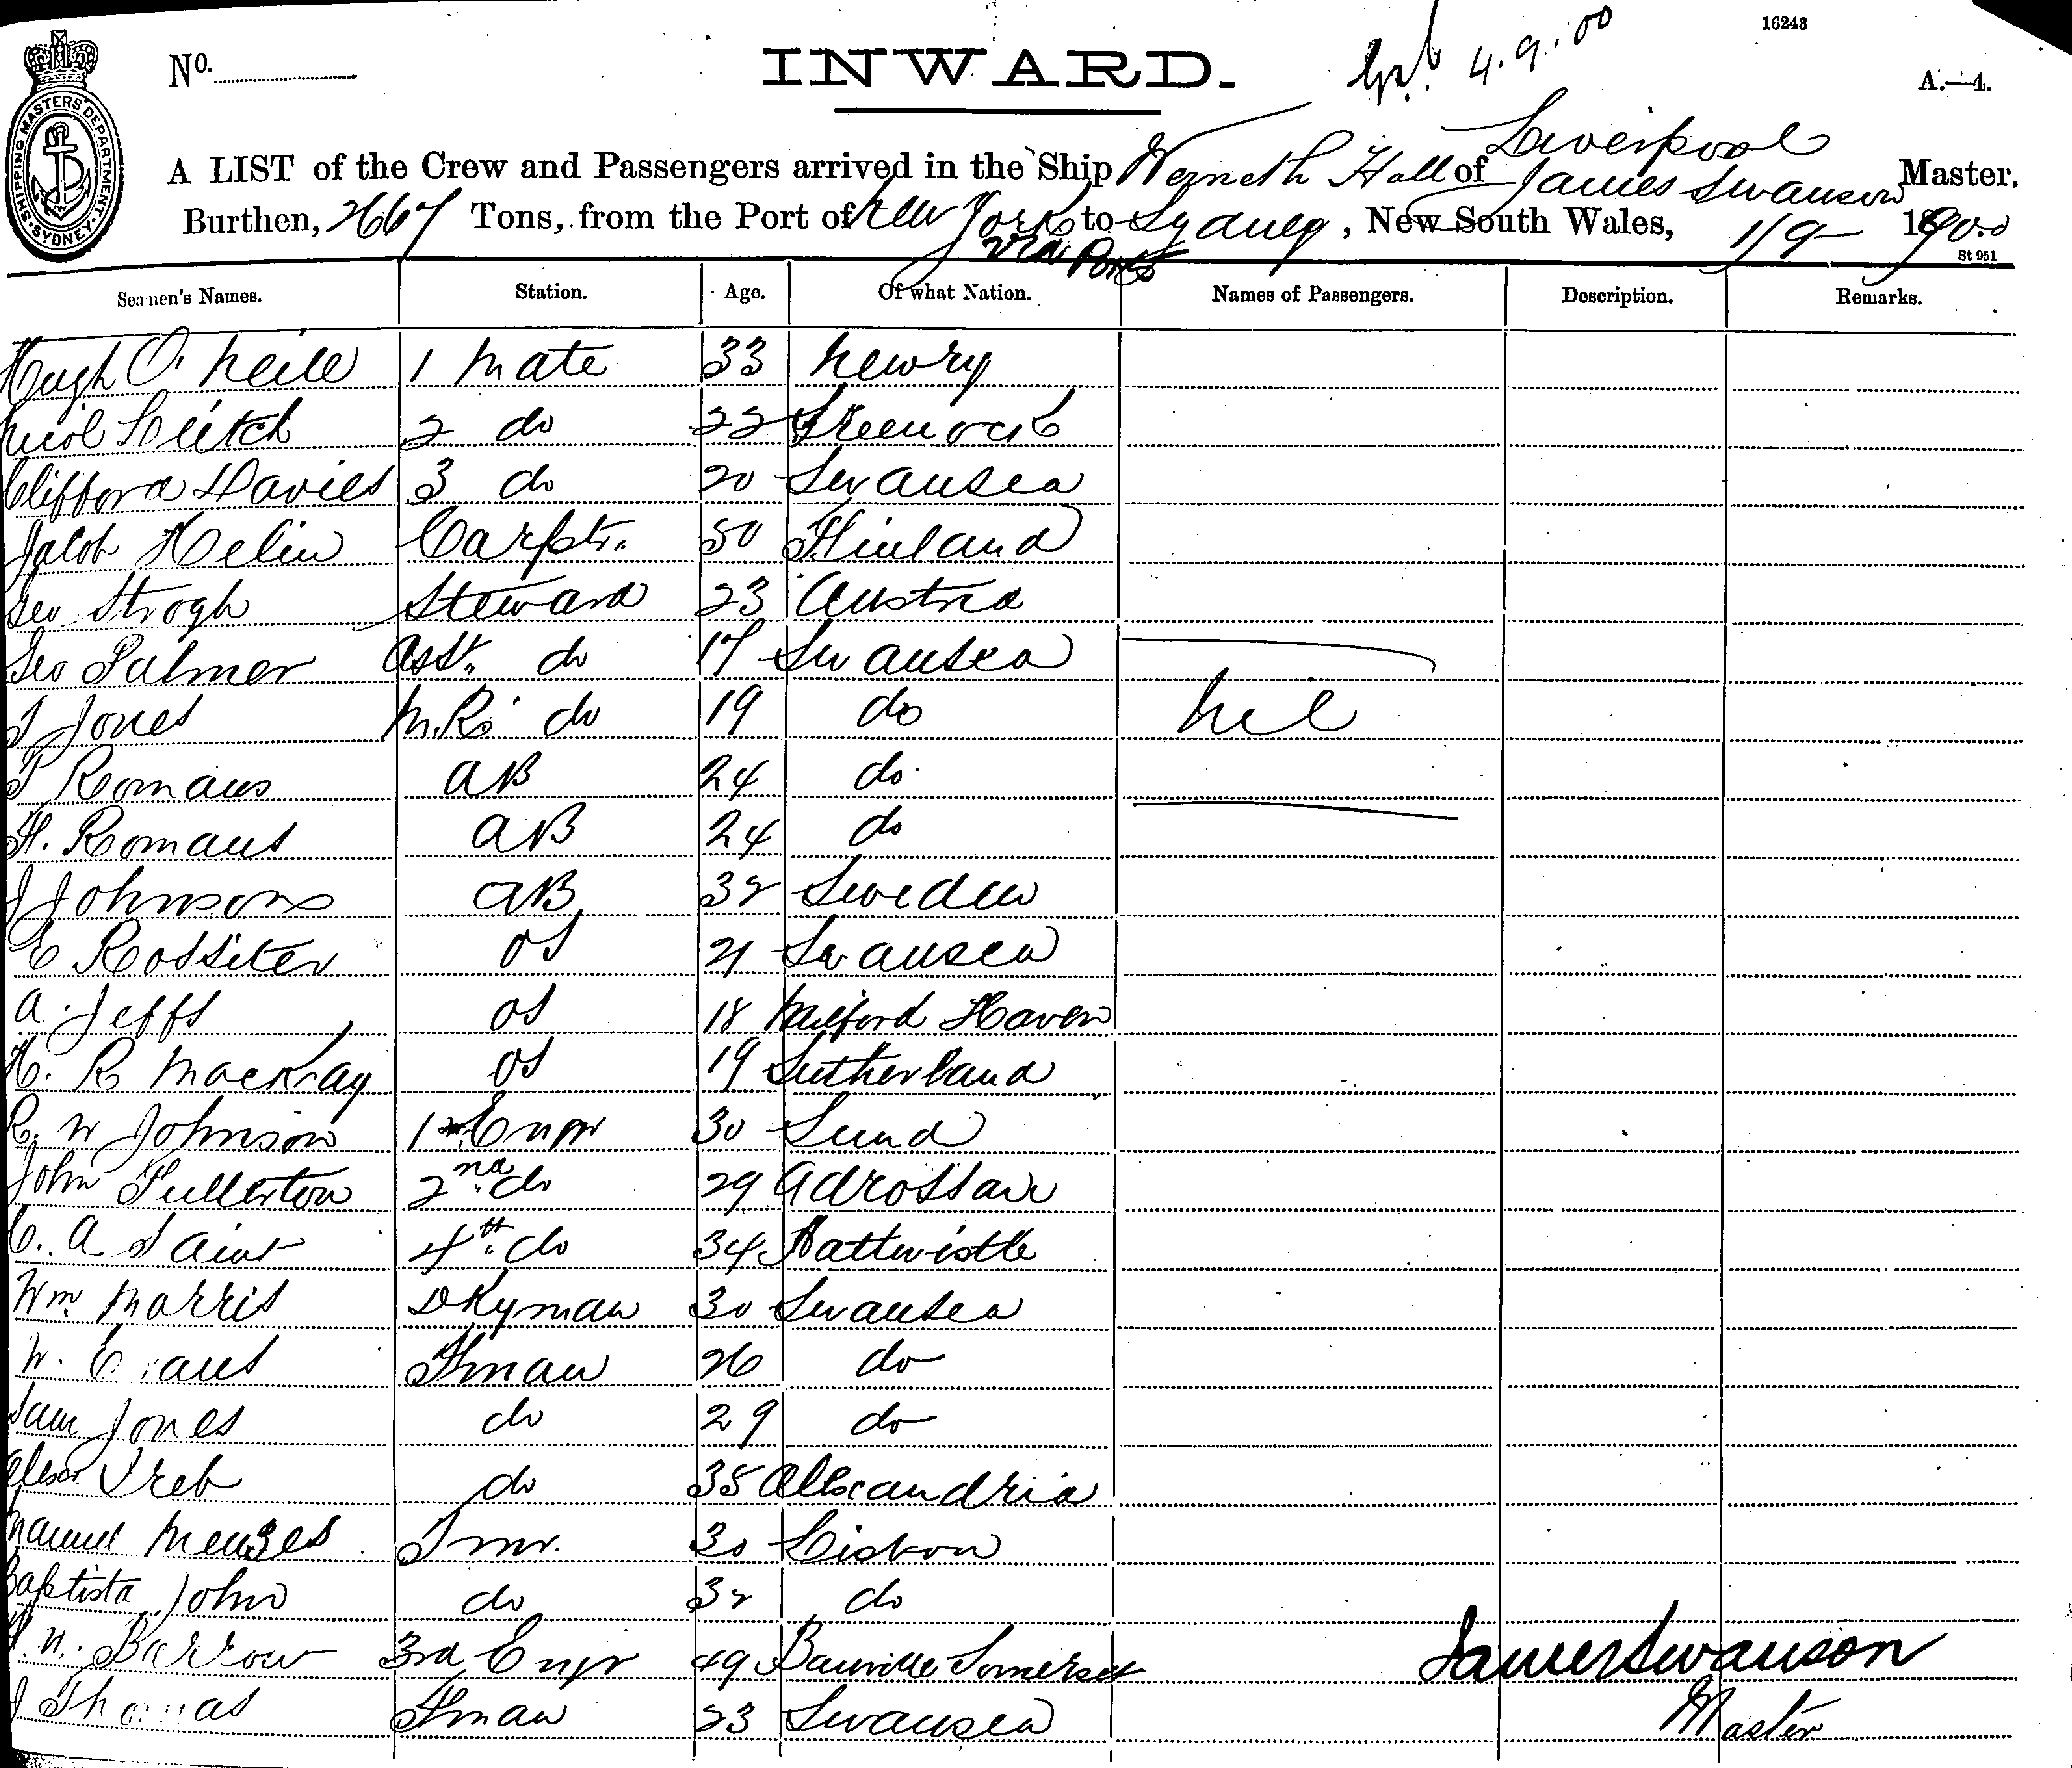 16243
No.
INWARD.
4.9.00
A.—4.
SHIPPING MASTERS DEPARTMENT. SYDNEY.
Liverpool
A LIST of the Crew and Passengers arrived in the Ship Werneth Hall of James Swanson Master.
Burthen, 2667 Tons, from the Port of New York to Sydney, New South Wales, 1/9 1900
via Ports
St 951
Seamen's Names. Station. Age. Of what Nation. Names of Passengers. Description. Remarks.
Hugh O'Neile 1 Mate 33 Newry
Nicol Leitch 2 do 22 Greenock
Clifford Davies 3 do 20 Swansea
Jacob Helin Carptr. 50 Finland
Geo Strogh Steward 23 Austria
Geo Palmer Asst. do 17 Swansea
T Jones M.R. do 19 do Nil
P Romans AB 24 do
H. Romans AB 24 do
J Johnsons AB 32 Sweden
E Rossiter OS 21 Swansea
A. Jeffs OS 18 Milford Haven
H. R Mackay OS 19 Sutherland
R. W Johnson 1st Engr 30 Lund
John Fullerton 2nd do 29 Adrossan
C. A Saint 4th do 34 Hattwistle
Wm Morris Dkyman 30 Swansea
W. Evans Fman 26 do
Sam Jones do 29 do
Alexr Treb do 35 Alexandria
Manuel Menzes Tmr. 30 Lisbon
Baptista John do 32 do
N. Barrow 3rd Engr 49 Somerset
J Thomas Fman 23 Swansea
James Swanson
Master